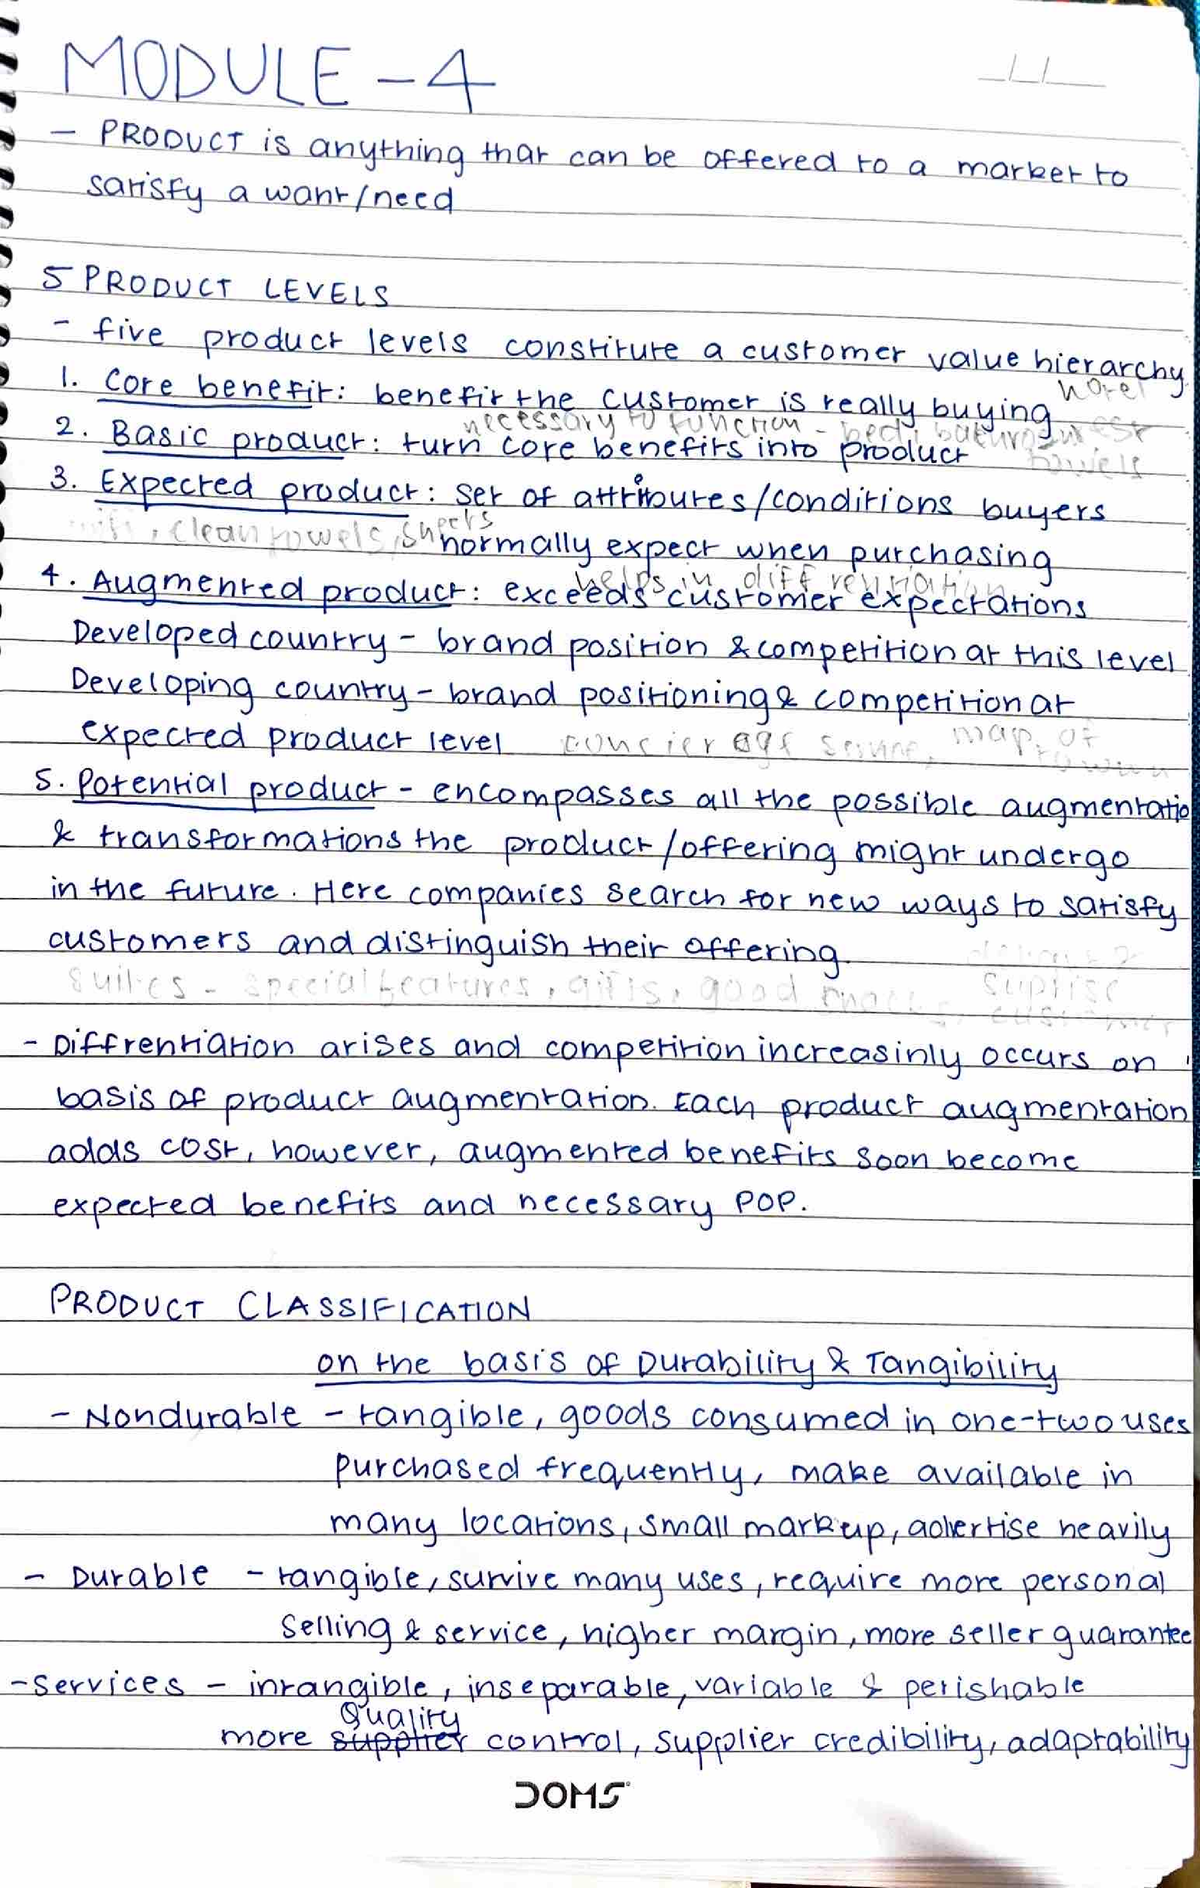 MODULE - 4
- PRODUCT is anything that can be offered to a market to
satisfy a want/need
5 PRODUCT LEVELS
- five product levels constitute a customer value hierarchy
hotel
1. Core benefit: benefit the customer is really buying
rest
necessary to function - bed, bathroom
towels
2. Basic product: turn core benefits into product
3. Expected product: set of attributes/conditions buyers
, clean towels, sheets
normally expect when purchasing
helps in diffrentiation
4. Augmented product: exceeds customer expectations
Developed country - brand position & competition at this level
Developing country - brand positioning & competition at
expected product level
service, map of
town
5. Potential product - encompasses all the possible augmentatio
& transformations the product/offering might undergo
in the future. Here companies search for new ways to satisfy
customers and distinguish their offering
suites - special features, gifts, good
suprise
customer
- Diffrentiation arises and competition increasinly occurs on
basis of product augmentation. Each product augmentation
adds cost, however, augmented benefits soon become
expected benefits and necessary POP.
PRODUCT CLASSIFICATION
on the basis of Durability & Tangibility
- Nondurable - tangible, goods consumed in one-two uses
purchased frequently, make available in
many locations, small markup, advertise heavily
- Durable - tangible, survive many uses, require more personal
selling & service, higher margin, more seller guarantee
- Services - intangible, inseparable, variable & perishable
quality
more supplier control, supplier credibility, adaptability
DOMS